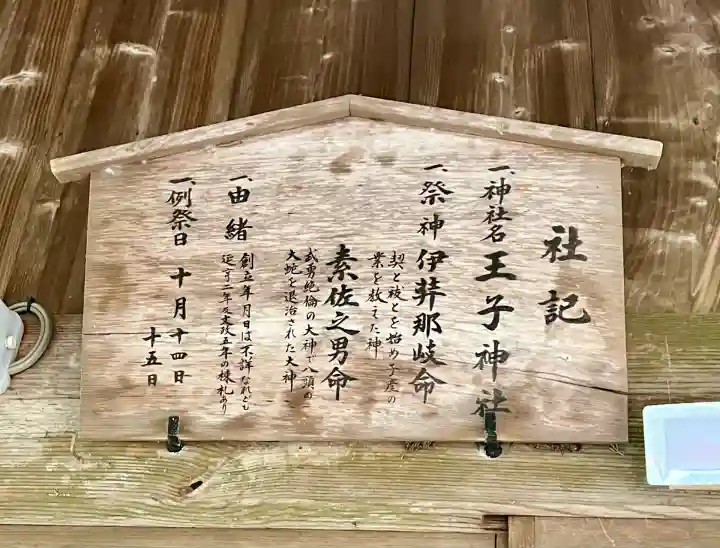 社記
一、神社名 王子神社
一、祭神 伊弉那岐命
契と祓とを始め子産の
業を教えた神
素佐之男命
武勇絶倫の大神で八頭の
大蛇を退治された大神
一、由緒 創立年月日は不詳なれども
延享二年及文政五年の棟札あり
一、例祭日 十月十四日
十五日